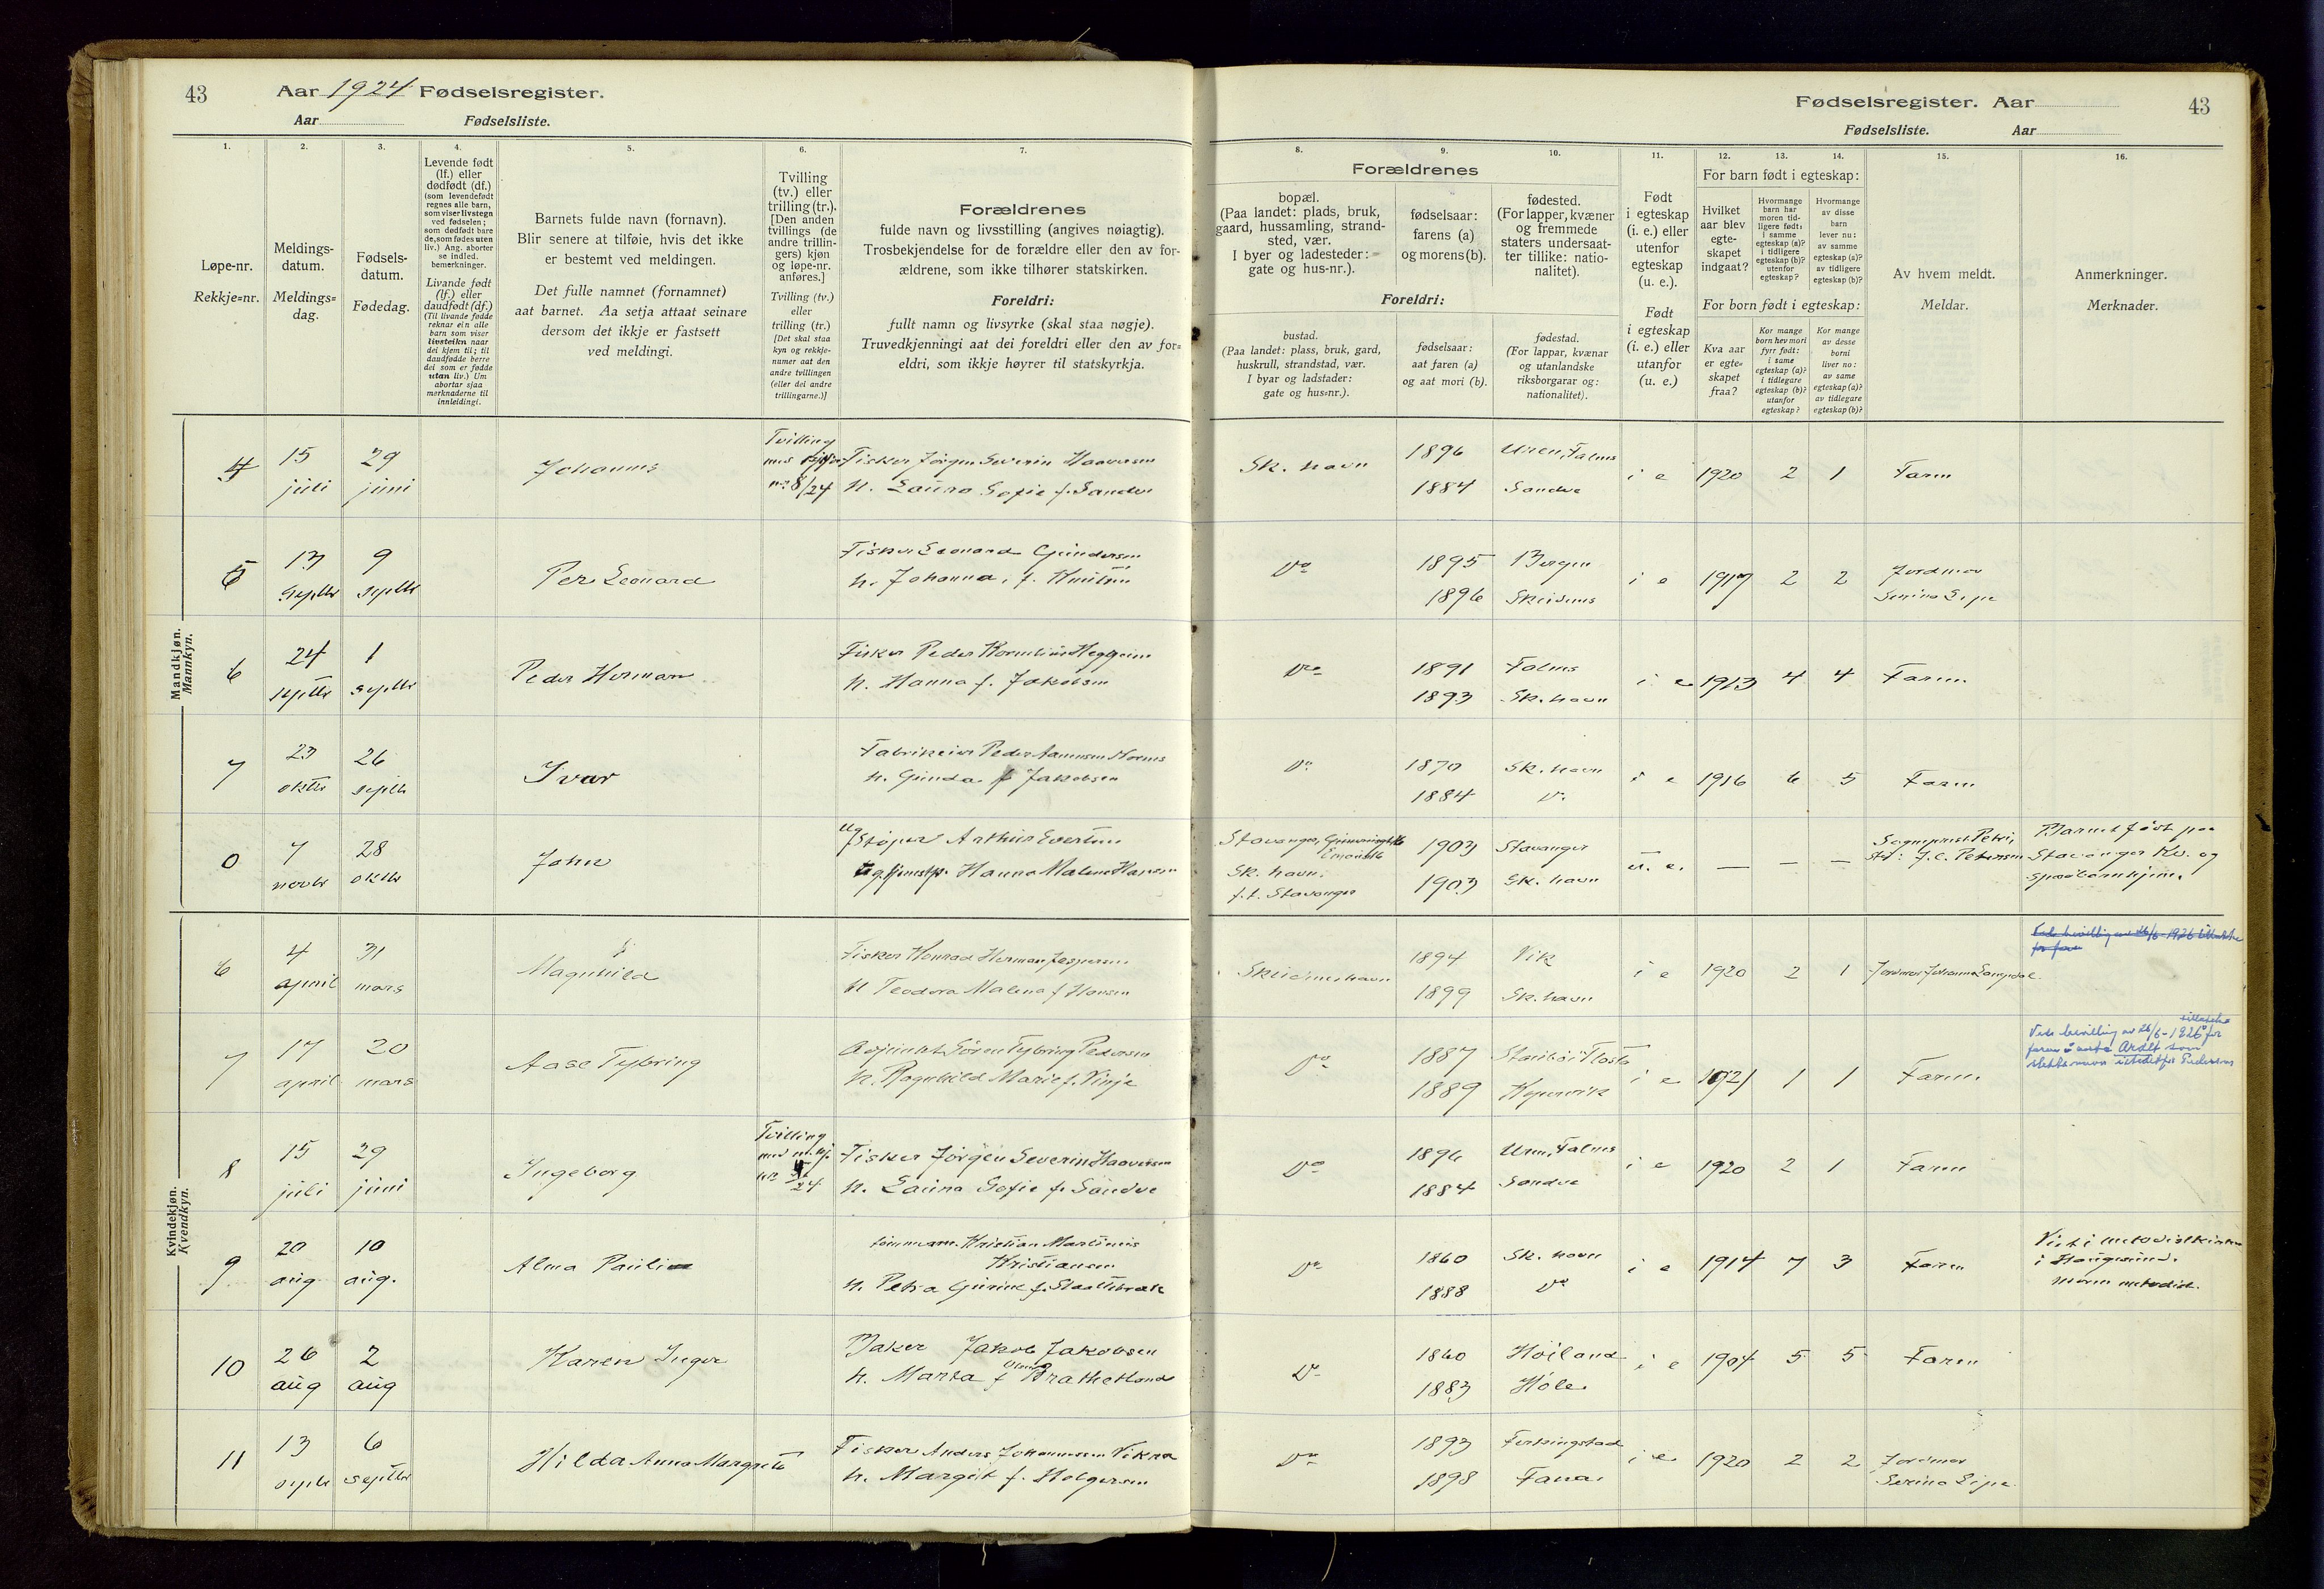 43
Aar 1924 Fødselsregister.
Aar Fødselsliste.
1.
2.
3.
4.
5.
6.
7.
Løpe-nr.
Rekkje=nr.
Meldings-
datum.
Meldings=
dag.
Fødsels-
datum.
Fødedag.
Levende født
(lf.) eller
dødfødt (df.)
(som levendefødt
regnes alle barn,
som viser livstegn
ved fødselen;
som dødfødt bare
de, som fødes uten
liv.) Ang. aborter
se indled.
bemerkninger.
Livande født
(lf.) eller
daudfødt (df.)
(Til livande fødde
reknar ein alle
barn som viser
livsteikn naar
dei kjem til; til
daudfødde berre
dei som er fødde
utan liv.) Um
abortar sjaa
merknaderne til
innleidingi.
Barnets fulde navn (fornavn).
Blir senere at tilføie, hvis det ikke
er bestemt ved meldingen.
Det fulle namnet (fornamnet)
aat barnet. Aa setja attaat seinare
dersom det ikkje er fastsett
ved meldingi.
Tvilling
(tv.) eller
trilling (tr.).
[Den anden
tvillings (de
andre trillin-
gers) kjøn
og løpe-nr.
anføres.]
Tvilling (tv.)
eller
trilling (tr.)
[Det skal staa
kyn og rekkje-
numer aat den
andre tvillingen
(eller dei andre
trillingarne.)]
Forældrenes
fulde navn og livsstilling (angives nøiagtig).
Trosbekjendelse for de forældre eller den av for-
ældrene, som ikke tilhører statskirken.
Foreldri:
fullt namn og livsyrke (skal staa nøgje).
Truvedkjenningi aat dei foreldri eller den av for=
eldri, som ikkje høyrer til statskyrkja.
Mandkjøn.
Mannkyn.
4 15 juli 29 juni Johannes Tvilling nr 8/24 Fisker Jørgen Severin Haaversen
h. Laura Sofie f. Sandve
13 septbr 9 septbr Per Leonard Fisker Leonard Gundersen
h. Johanna, f. Knutsen
6 24 septbr 1 septbr Peder Herman Fisker Peder Kornelius Heggheim
h. Hanna f. Jakobsen
7 23 oktbr 26 septbr Ivar Fabrikeier Peder
h. Gunda f Jakobsen
0 7 novbr 28 oktbr John Ug Støper Arthur Evertsen
Hanna Malene Hansen
Kvindekjøn.
Kvendkyn.
6 4 april 31 mars Magnhild Fisker Konrad Herman Jespersen
h Teodora Malena f Hansen
7 17 april 20 mars Aase Tybring Adjunkt Søren Tybring Pedersen
h. Ragnhild Marie f. Vinje
8 15 juli 29 juni Ingeborg Tvilling med m.kj. nr 24 Fisker Jørgen Severin Haaversen
h. Laura Sofie f. Sandve
9 20 aug 10 aug. Alma Pauline Kristian Martinius
Kristiansen
h. Petra Gurine f.
10 26 aug 2 aug Karen Inger Baker Jakob Jakobsen
h. Marta f Brathetland
11 13 septbr 6 septbr Hilda Anna Margrete Fisker Anders Johannessen Vikra
h. Margit f. Holgersen
Fødselsregister. Aar
43
Fødselsliste. Aar
8.
9.
10.
11.
12.
13.
14.
15.
16.
Forældrenes
bopæl.
(Paa landet: plads, bruk,
gaard, hussamling, strand-
sted, vær.
I byer og ladesteder:
gate og hus-nr.).
fødselsaar:
farens (a)
og morens (b).
fødested.
(For lapper, kvæner
og fremmede
staters undersaat-
ter tillike: natio-
nalitet).
Foreldri:
bustad.
(Paa landet: plass, bruk, gard,
huskrull, strandstad, vær.
I byar og ladstader:
gate og hus=nr.).
fødselsaar:
aat faren (a)
og aat mori (b).
fødestad.
(For lappar, kvænar
og utanlandske
riksborgarar og:
nationalitet).
Født
i egteskap
(i. e.) eller
utenfor
egteskap
(u. e.).
Født
i egteskap
(i. e.) eller
utanfor
(u. e.)
For barn født i egteskap:
Hvilket
aar blev
egte-
skapet
indgaat?
Hvormange
barn har
moren tid-
ligere født:
i samme
egteskap (a)?
i tidligere
egteskap (b)?
utenfor
egteskap?
Hvormange
av disse
barn
lever nu:
av samme
egteskap (a)?
av tidligere
egteskap (b)?
For born født i egteskap:
Kva aar
er egte-
skapet
fraa?
Kor mange
born hev mori
fyrr født:
i same
egteskap (a)?
i tidlegare
egteskap (b)?
utanfor
egteskap?
Kor mange
av desse
borni
liver no:
av same
egteskap (a)?
av tidlegare
egteskap (b)?
Av hvem meldt.
Meldar.
Anmerkninger.
Merknader.
Sk. havn 1896 Uren, Falnes
1884 Sandve i e 1920 2 1 Faren
Do 1895 Bergen
1896 Skudenes i e 1917 2 2 Jordmor
Serina Lipe
Do 1891 Falnes
1893 Sk. havn i e 1913 4 4 Faren
Do 1870 Sk. havn
1884 Do i e 1916 6 5 Faren
Stavanger,
Sk. havn,
f.t. Stavanger 1903 Stavanger
1903 Sk. havn u. e. — — — Sogneprest Petri,
Barnet født paa
Stavanger Kv. og
spedbarnhjem.
Skudeneshavn 1894 Vik
1899 Sk. havn i e 1920 2 1 Jordmor Johanna
Do 1887
1889 Kopervik i e 1921 1 1 Faren
Vide bevilling av 26/6-1926 tillatelse for
faren å anta Ardt som
slektsnavn istedetfor Pedersen
Do 1896 Uren, Falnes
1884 Sandve i e 1920 2 1 Faren
Do 1860 Sk. havn
1888 Do i e 1914 7 3 Faren
Viet i metodistkirken
i Haugesund.
Moren metodist.
Do 1860 Høiland
1883 Høle i e 1904 5 5 Faren
Do 1893 Ferkingstad
1898 Fana i e 1920 2 2 Jordmor
Serina Lipe